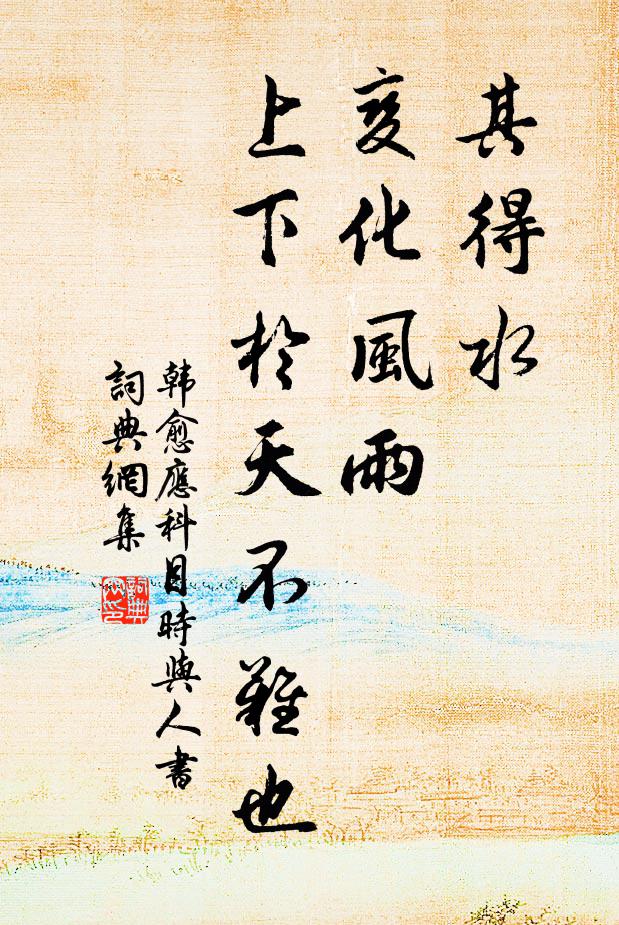 其得水
變化風雨
上下於天不難也
韩愈應科目時與人書
詞典網集